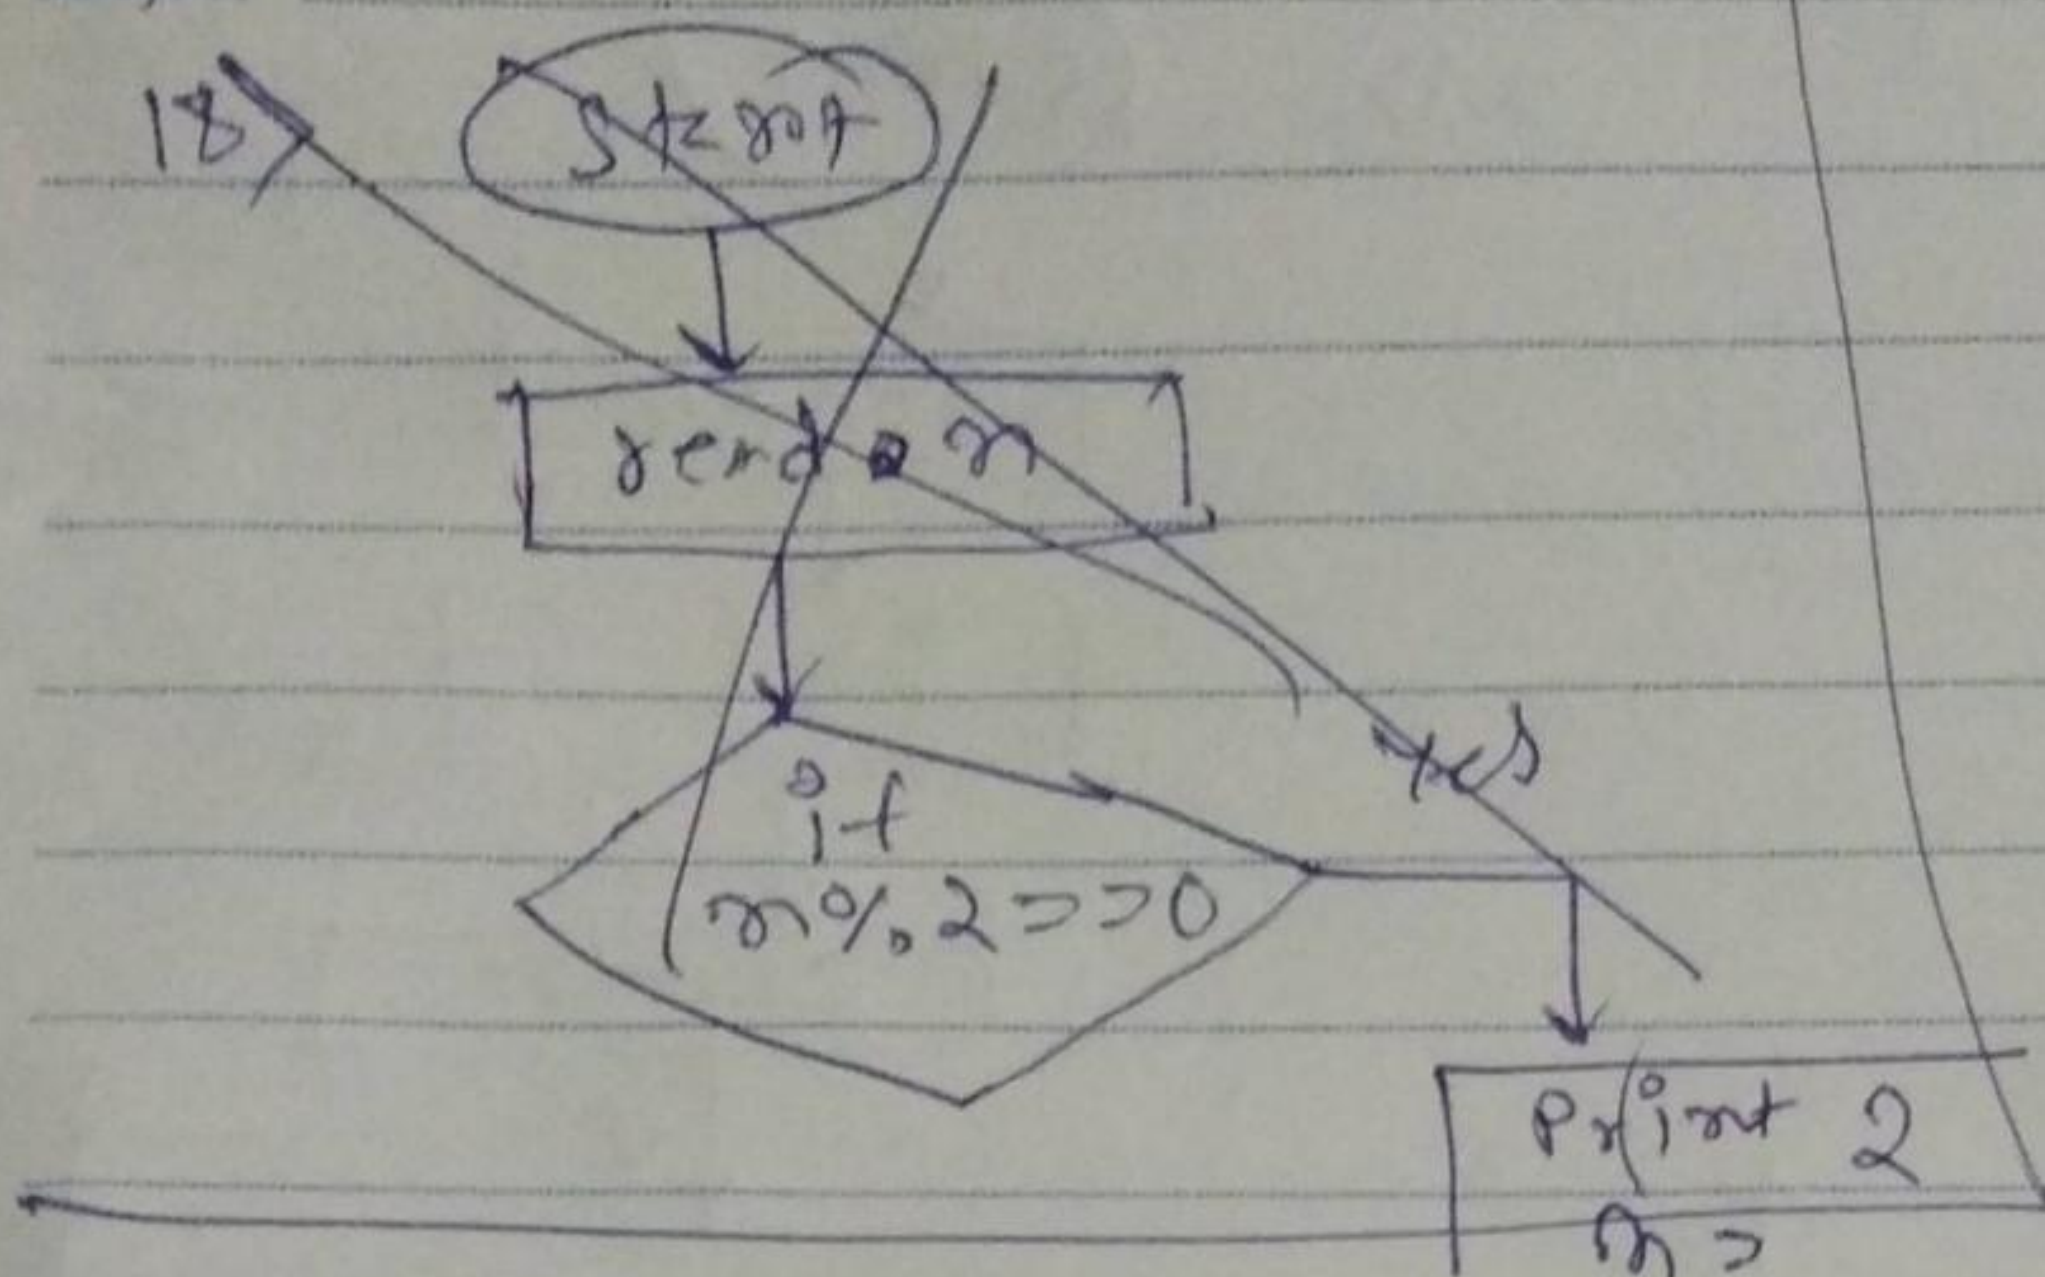 18)
Start
read n
if
n%2==0
yes
Print 2
n=